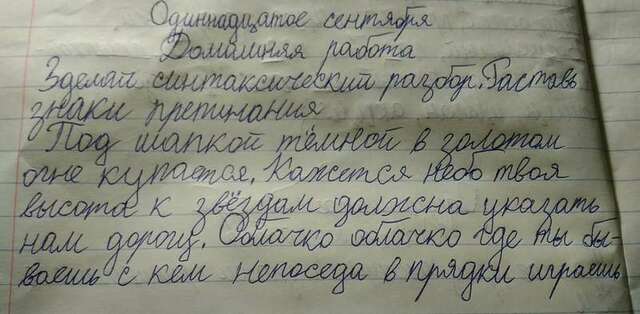 Одиннадцатое сентября
Домашняя работа
Зделай синтаксический разбор. Раставь
знаки препинания
Под шапкой тёмной в золотом
огне купается. Кажется небо твоя
высота к звёздам должна указать
нам дорогу. Облачко облачко где ты бы-
ваешь с кем непоседа в прядки играешь